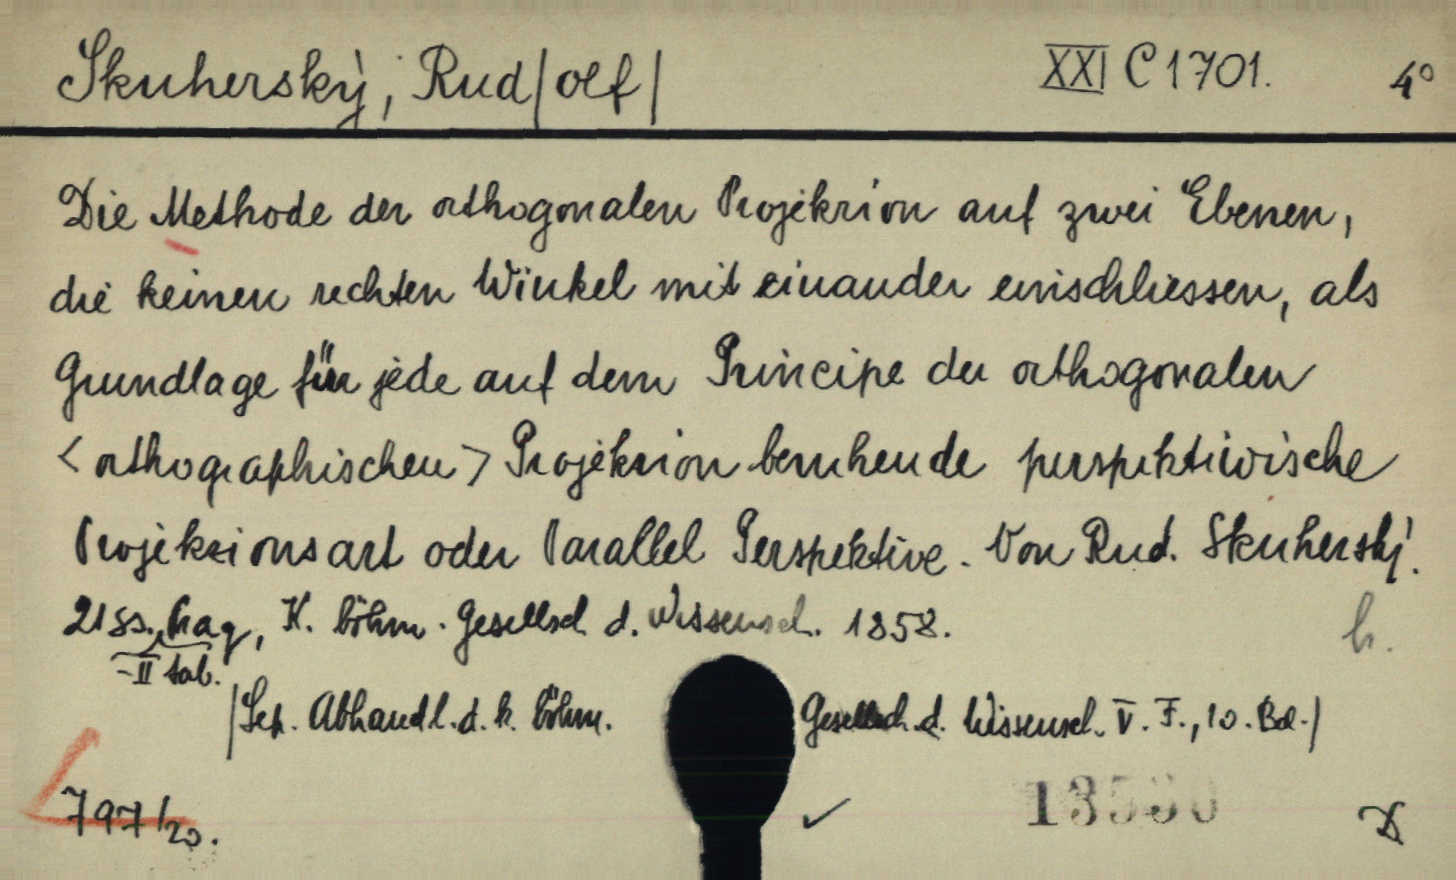 Skuherský, Rud/olf/ XXI C 1701. 4°
Die Methode der orthogonalen Projekzion auf zwei Ebenen,
die keinen rechten Winkel mit einander einschliessen, als
Grundlage für jede auf dem Principe der orthogonalen
<orthographischen> Projekzion beruhende perspektivische
Projekzionsart oder Parallel Perspektive. Von Rud. Skuherský.
21 SS. Prag, K. böhm. Gesellsch d. Wissensch. 1858. h.
-II tab.
/Sep. Abhandl. d. k. böhm. Gesellsch. d. Wissensch. V. F., 10. Bd./
797/20. 13530